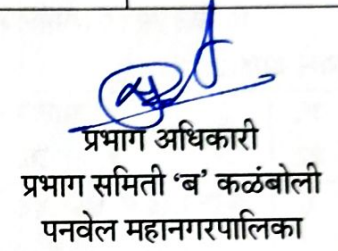 प्रभाग अधिकारी
प्रभाग समिती ‘ब’ कळंबोली
पनवेल महानगरपालिका